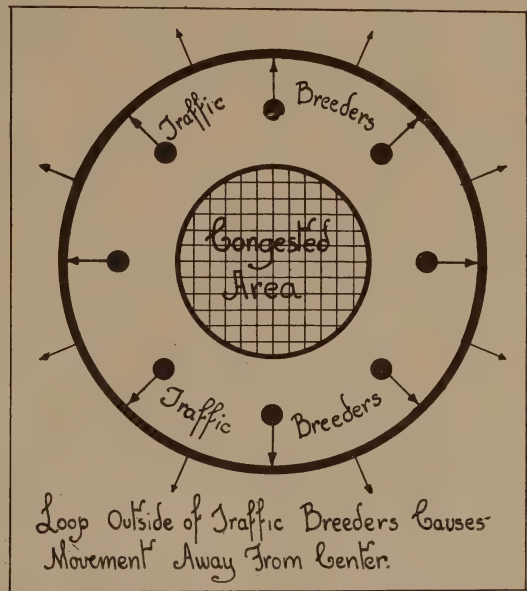 Traffic Breeders
Congested
Area
Traffic Breeders
Loop Outside of Traffic Breeders Causes
Movement Away From Center.